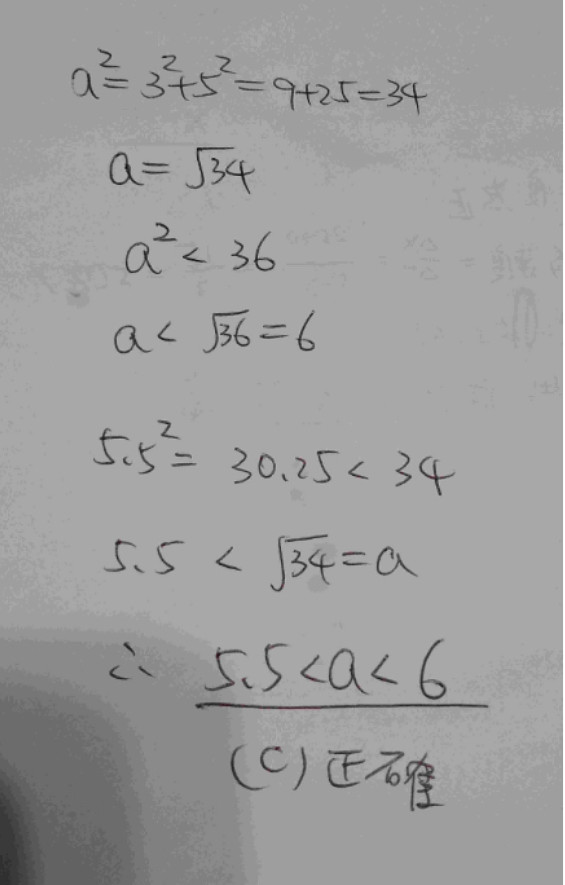 a²=3²+5²=9+25=34
a=√34
a²<36
a<√36=6
5.5²=30.25<34
5.5<√34=a
∴ 5.5<a<6
(C)正確